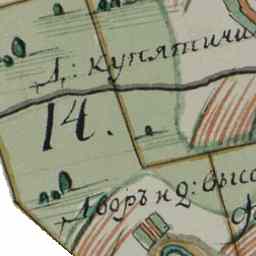 Д: купятичи
14.
Дворъ н2: высо